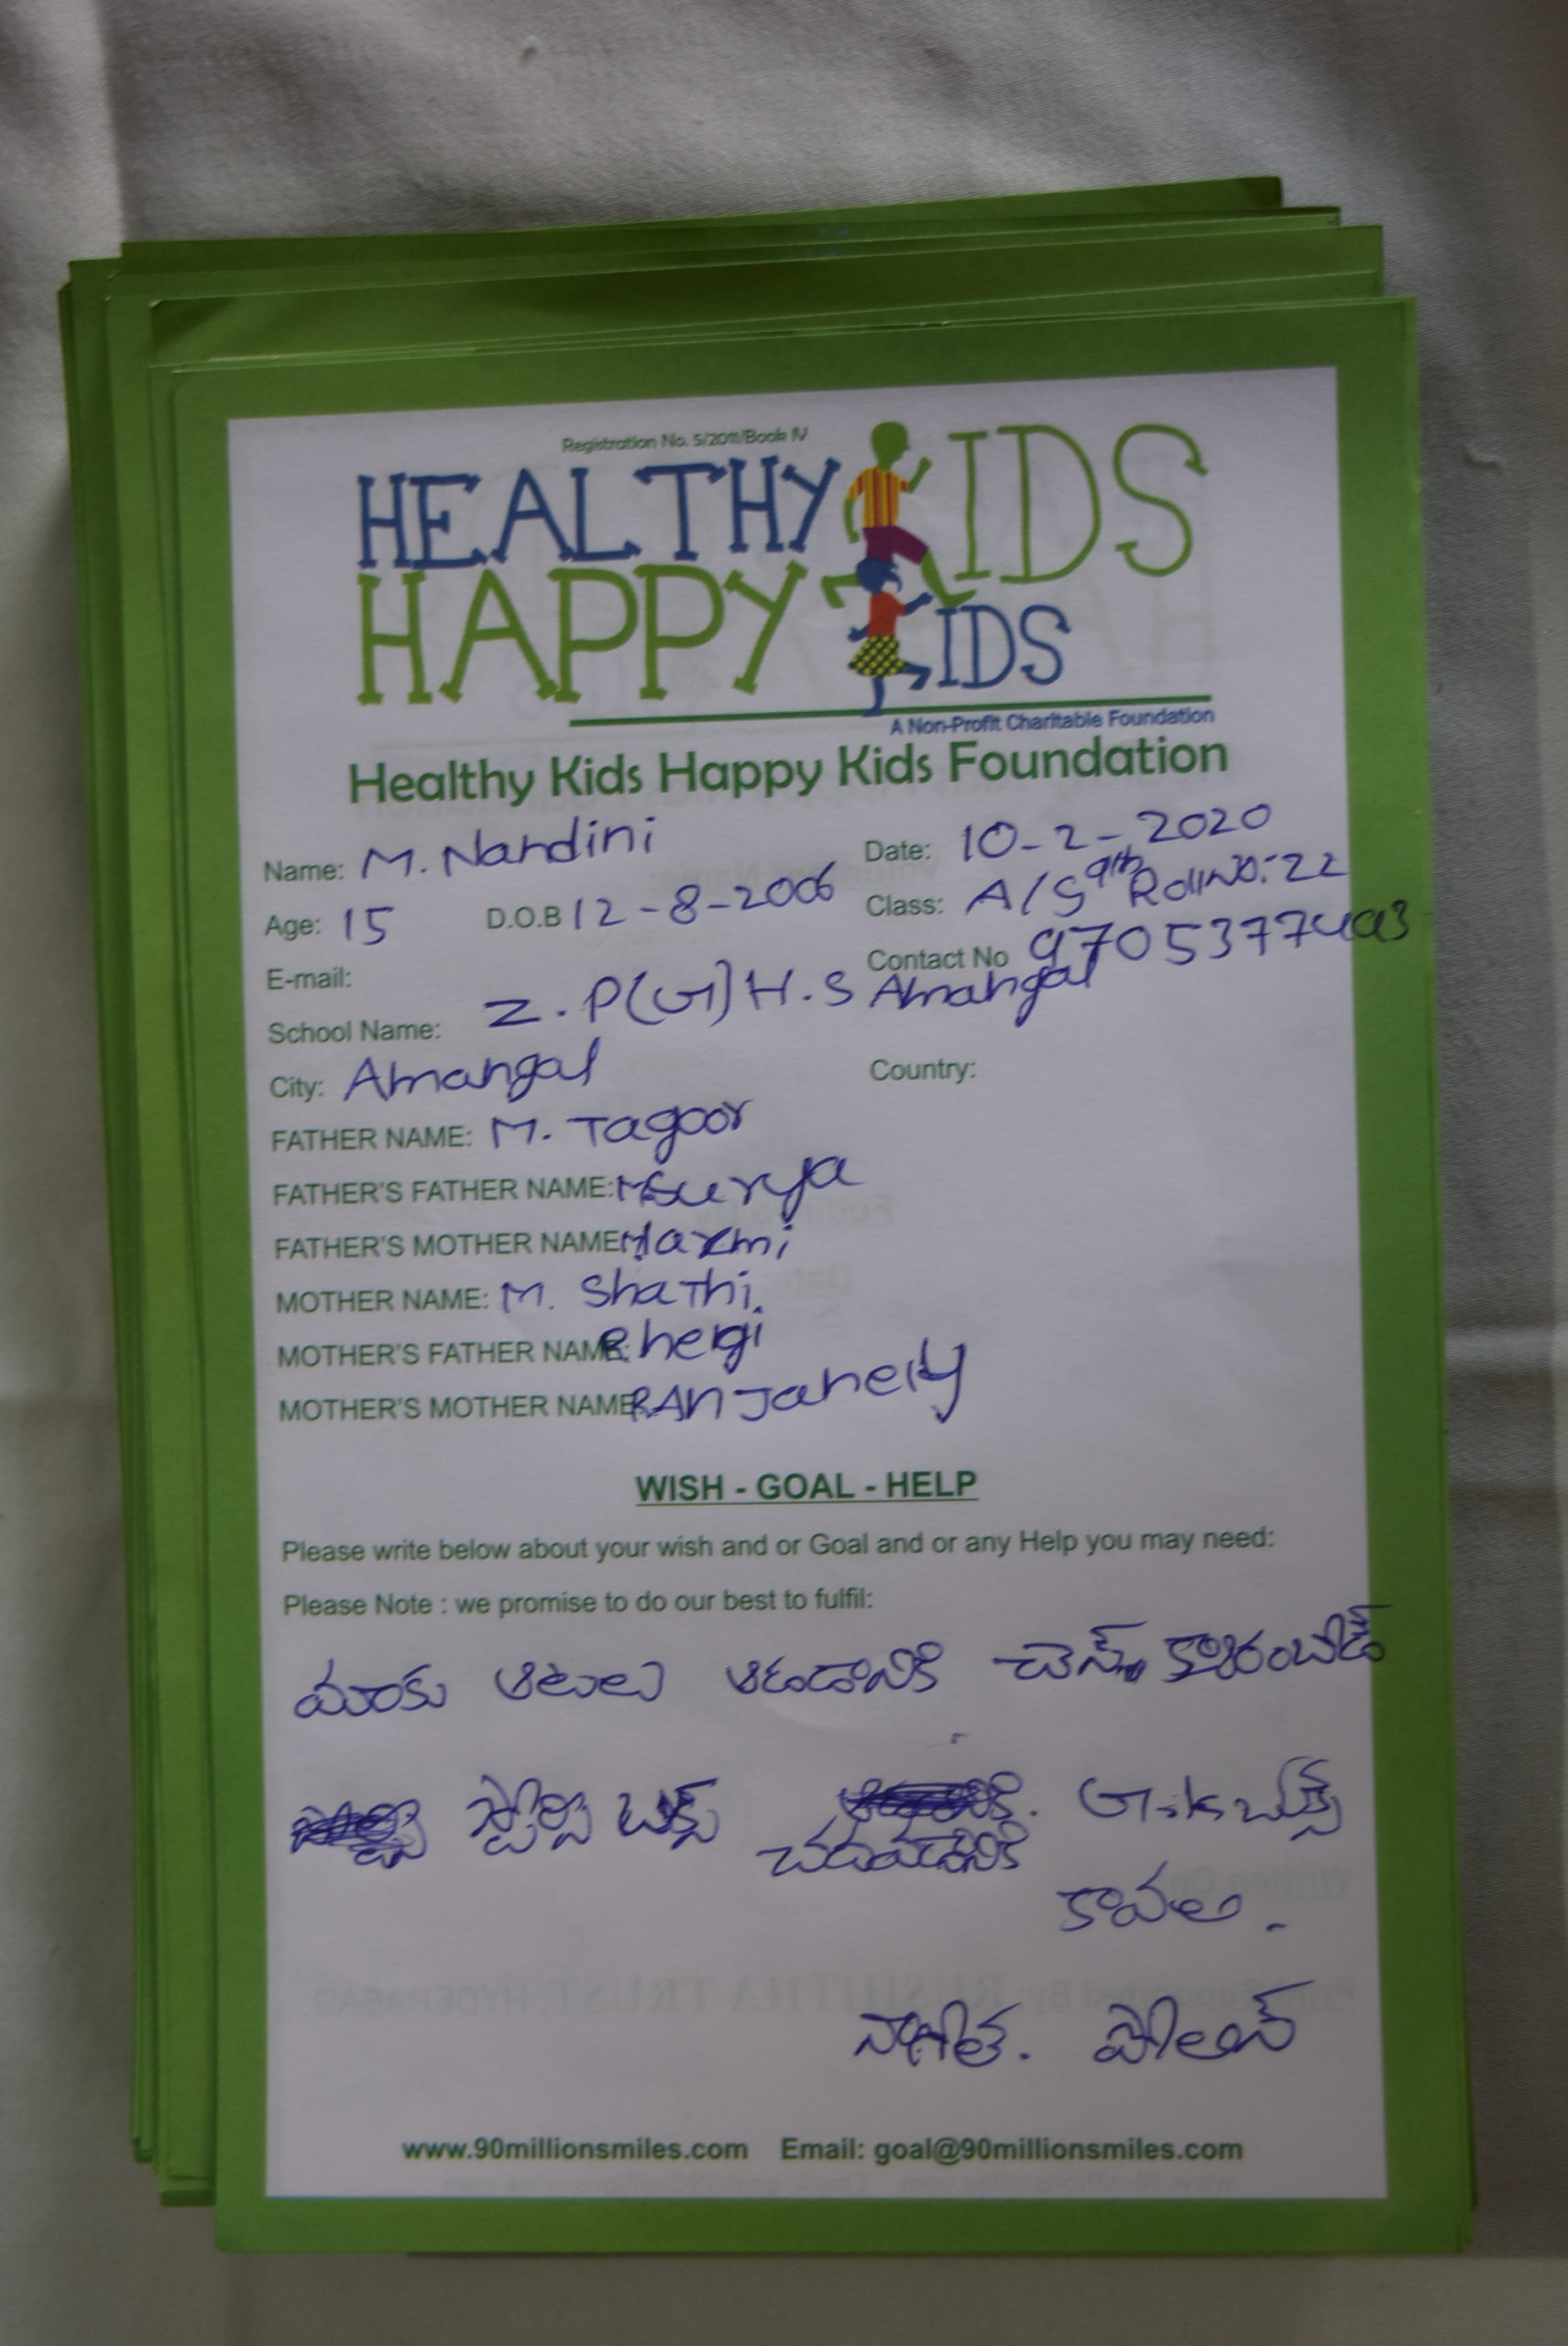 Registration No. 5/2011/Book IV
HEALTHY KIDS
HAPPY KIDS
A Non-Profit Charitable Foundation
Healthy Kids Happy Kids Foundation
Name: M. Nandini Date: 10-2-2020
Age: 15 D.O.B 12-8-2006 Class: 9th Roll No:-22
E-mail: Contact No 9705377493
School Name: Z.P(G)H.S Amangal
City: Amangal Country:
FATHER NAME: M. Tagoor
FATHER'S FATHER NAME: M Surya
FATHER'S MOTHER NAME: laxmi
MOTHER NAME: M. Shathi
MOTHER'S FATHER NAME:
MOTHER'S MOTHER NAME:
WISH - GOAL - HELP
Please write below about your wish and or Goal and or any Help you may need:
Please Note : we promise to do our best to fulfil:
మాకు ఆటలు ఆడడానికి చెస్, క్యారంబోర్డ్
స్టోరీస్ బుక్స్ చదవడానికి G.k బుక్స్
కావలి.
పోలీస్
www.90millionsmiles.com Email: goal@90millionsmiles.com